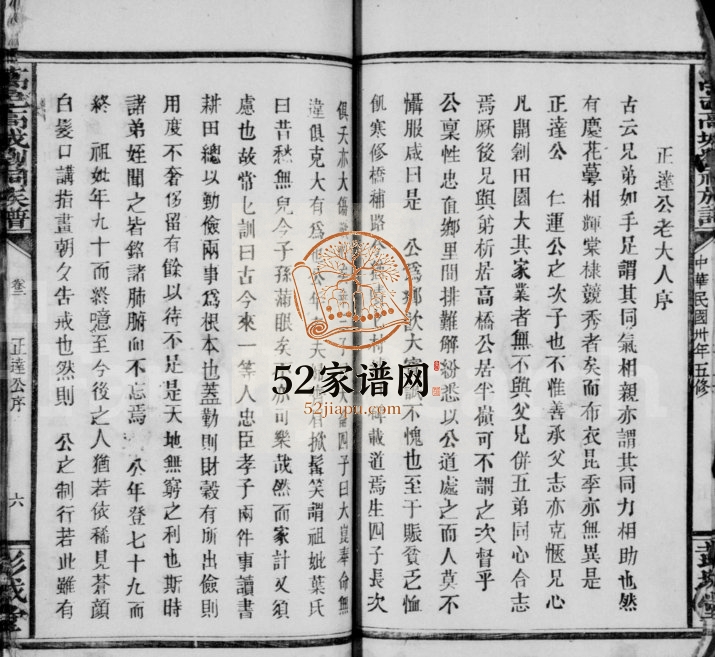 正達公老大人序
古云兄弟如手足謂其同氣相親亦謂其同力相助也然
有慶花萼相輝棠棣競秀者矣而布衣昆季亦無異是
正達公 仁運公之次子也不惟善承父志亦克愜兄心
凡開創田園大其家業者無不與父兄併五弟同心合志
焉厥後兄與弟析居高橋公居半嶺可不謂之次督乎
公稟性忠直鄉里間排難解紛悉以公道處之而人莫不
懾服咸曰是 公為鄉飲大賓誠不愧也至于賑貧乏恤
飢寒修橋補路 載道焉生四子長次
俱夭亦大傷 四子曰大崑奉命無
違俱克大有為 掀髯笑謂祖妣葉氏
曰昔愁無兒今子孫滿眼矣亦可樂哉然而家計又須
慮也故常訓曰古今來一等人忠臣孝子兩件事讀書
耕田總以勤儉兩事為根本也蓋勤則財穀有所出儉則
用度不奢侈留有餘以待不足是天地無窮之利也斯時
諸弟姪聞之皆銘諸肺腑而不忘焉 公年登七十九而
終 祖妣年九十而終噫至今後之人猶若依稀見蒼顏
白髮口講指畫朝夕告戒也然則 公之制行若此雖有
中華民國卅年五修
卷二
正達公序
六
彭城堂
52家谱网
52jiapu.com